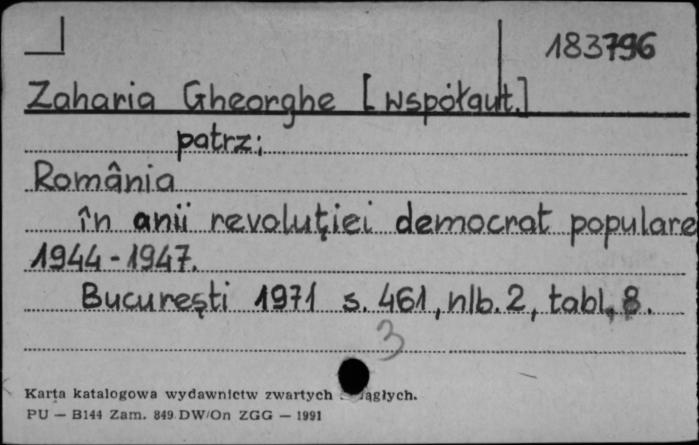 183796
Zaharia Gheorghe [współaut.]
patrz:
România
în anii revoluţiei democrat populare
1944-1947.
Bucureşti 1971 s. 461, nlb. 2, tabl. 8.
3
Karta katalogowa wydawnictw zwartych ągłych.
PU — B144 Zam. 849 DW/On ZGG — 1991